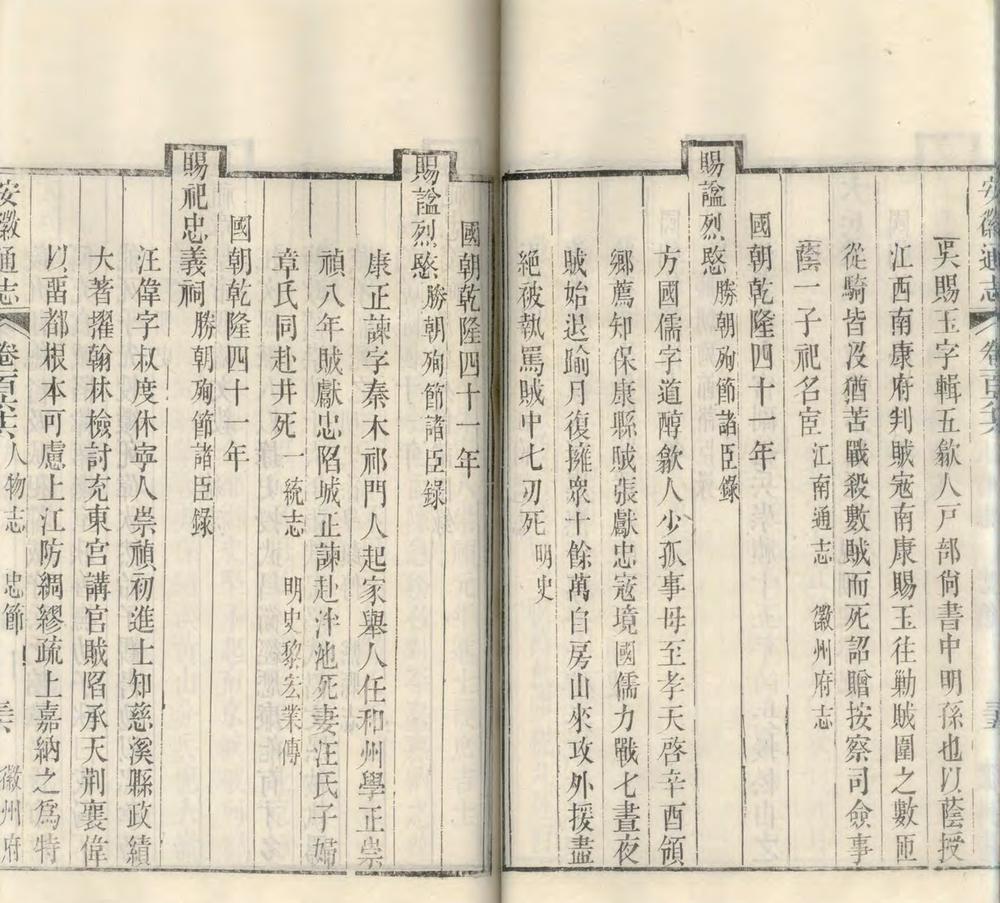 安徽通志
吳賜玉字輯五歙人戸部尙書中明孫也以蔭授
江西南康府判賊寇南康賜玉往勦賊圍之數匝
從騎皆没猶苦戰殺數賊而死詔贈按察司僉事
蔭一子祀名宦 江南通志 徽州府志
國朝乾隆四十一年
賜諡烈愍 勝朝殉節諸臣錄
方國儒字道醇歙人少孤事母至孝天啓辛酉領
鄉薦知保康縣賊張獻忠寇境國儒力戰七晝夜
賊始退踰月復擁衆十餘萬自房山來攻外援盡
絕被執罵賊中七刃死 明史
國朝乾隆四十一年
賜諡烈愍 勝朝殉節諸臣錄
康正諫字秦木祁門人起家舉人任和州學正崇
禎八年賊獻忠陷城正諫赴泮池死妻汪氏子婦
章氏同赴井死 一統志 明史黎宏業傳
國朝乾隆四十一年
賜祀忠義祠 勝朝殉節諸臣錄
汪偉字叔度休寧人崇禎初進士知慈溪縣政績
大著擢翰林檢討充東宮講官賊陷承天荆襄偉
以畱都根本可慮上江防綢繆疏上嘉納之爲特
安徽通志 人物志 忠節 徽州府